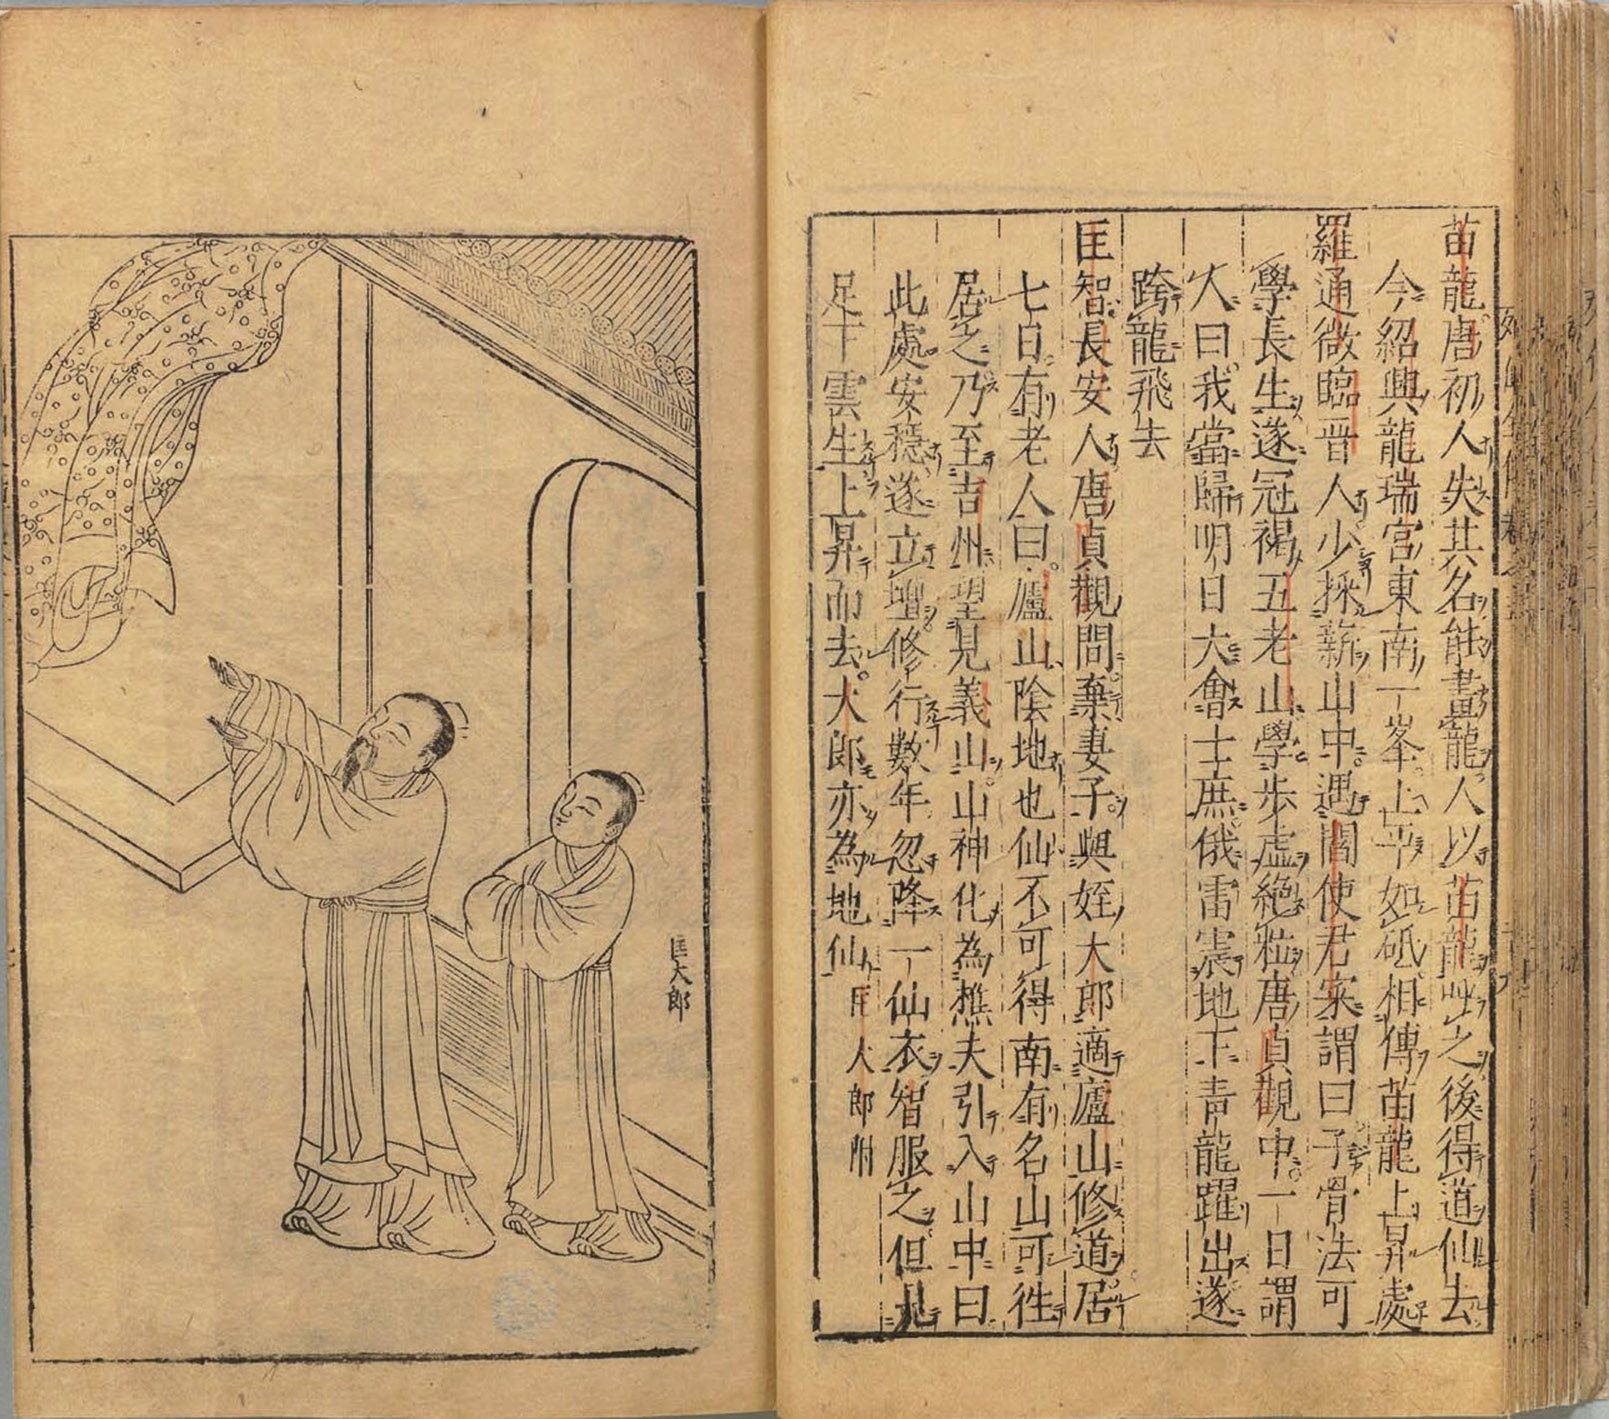 苗龍唐初人失其名能畫龍人以苗龍呼之後得道仙去
今紹興龍瑞宮東南一峯上平如砥相傳苗龍上昇處
羅通微臨晋人少採薪山中遇閻使君寀謂曰子骨法可
學長生遂冠褐五老山學步虛絶粒唐貞觀中一日謂
人曰我當歸明日大會士庶俄雷震地下青龍躍出遂
跨龍飛去
匡智長安人唐貞觀間棄妻子與姪大郎適廬山修道居
七日有老人曰廬山陰地也仙不可得南有名山可徃
居之乃至吉州望見義山山神化為樵夫引入山中曰
此處安穩遂立壇修行數年忽降一仙衣智服之但見
足下雲生上昇而去大郎亦為地仙 匡大郎附
匡大郎